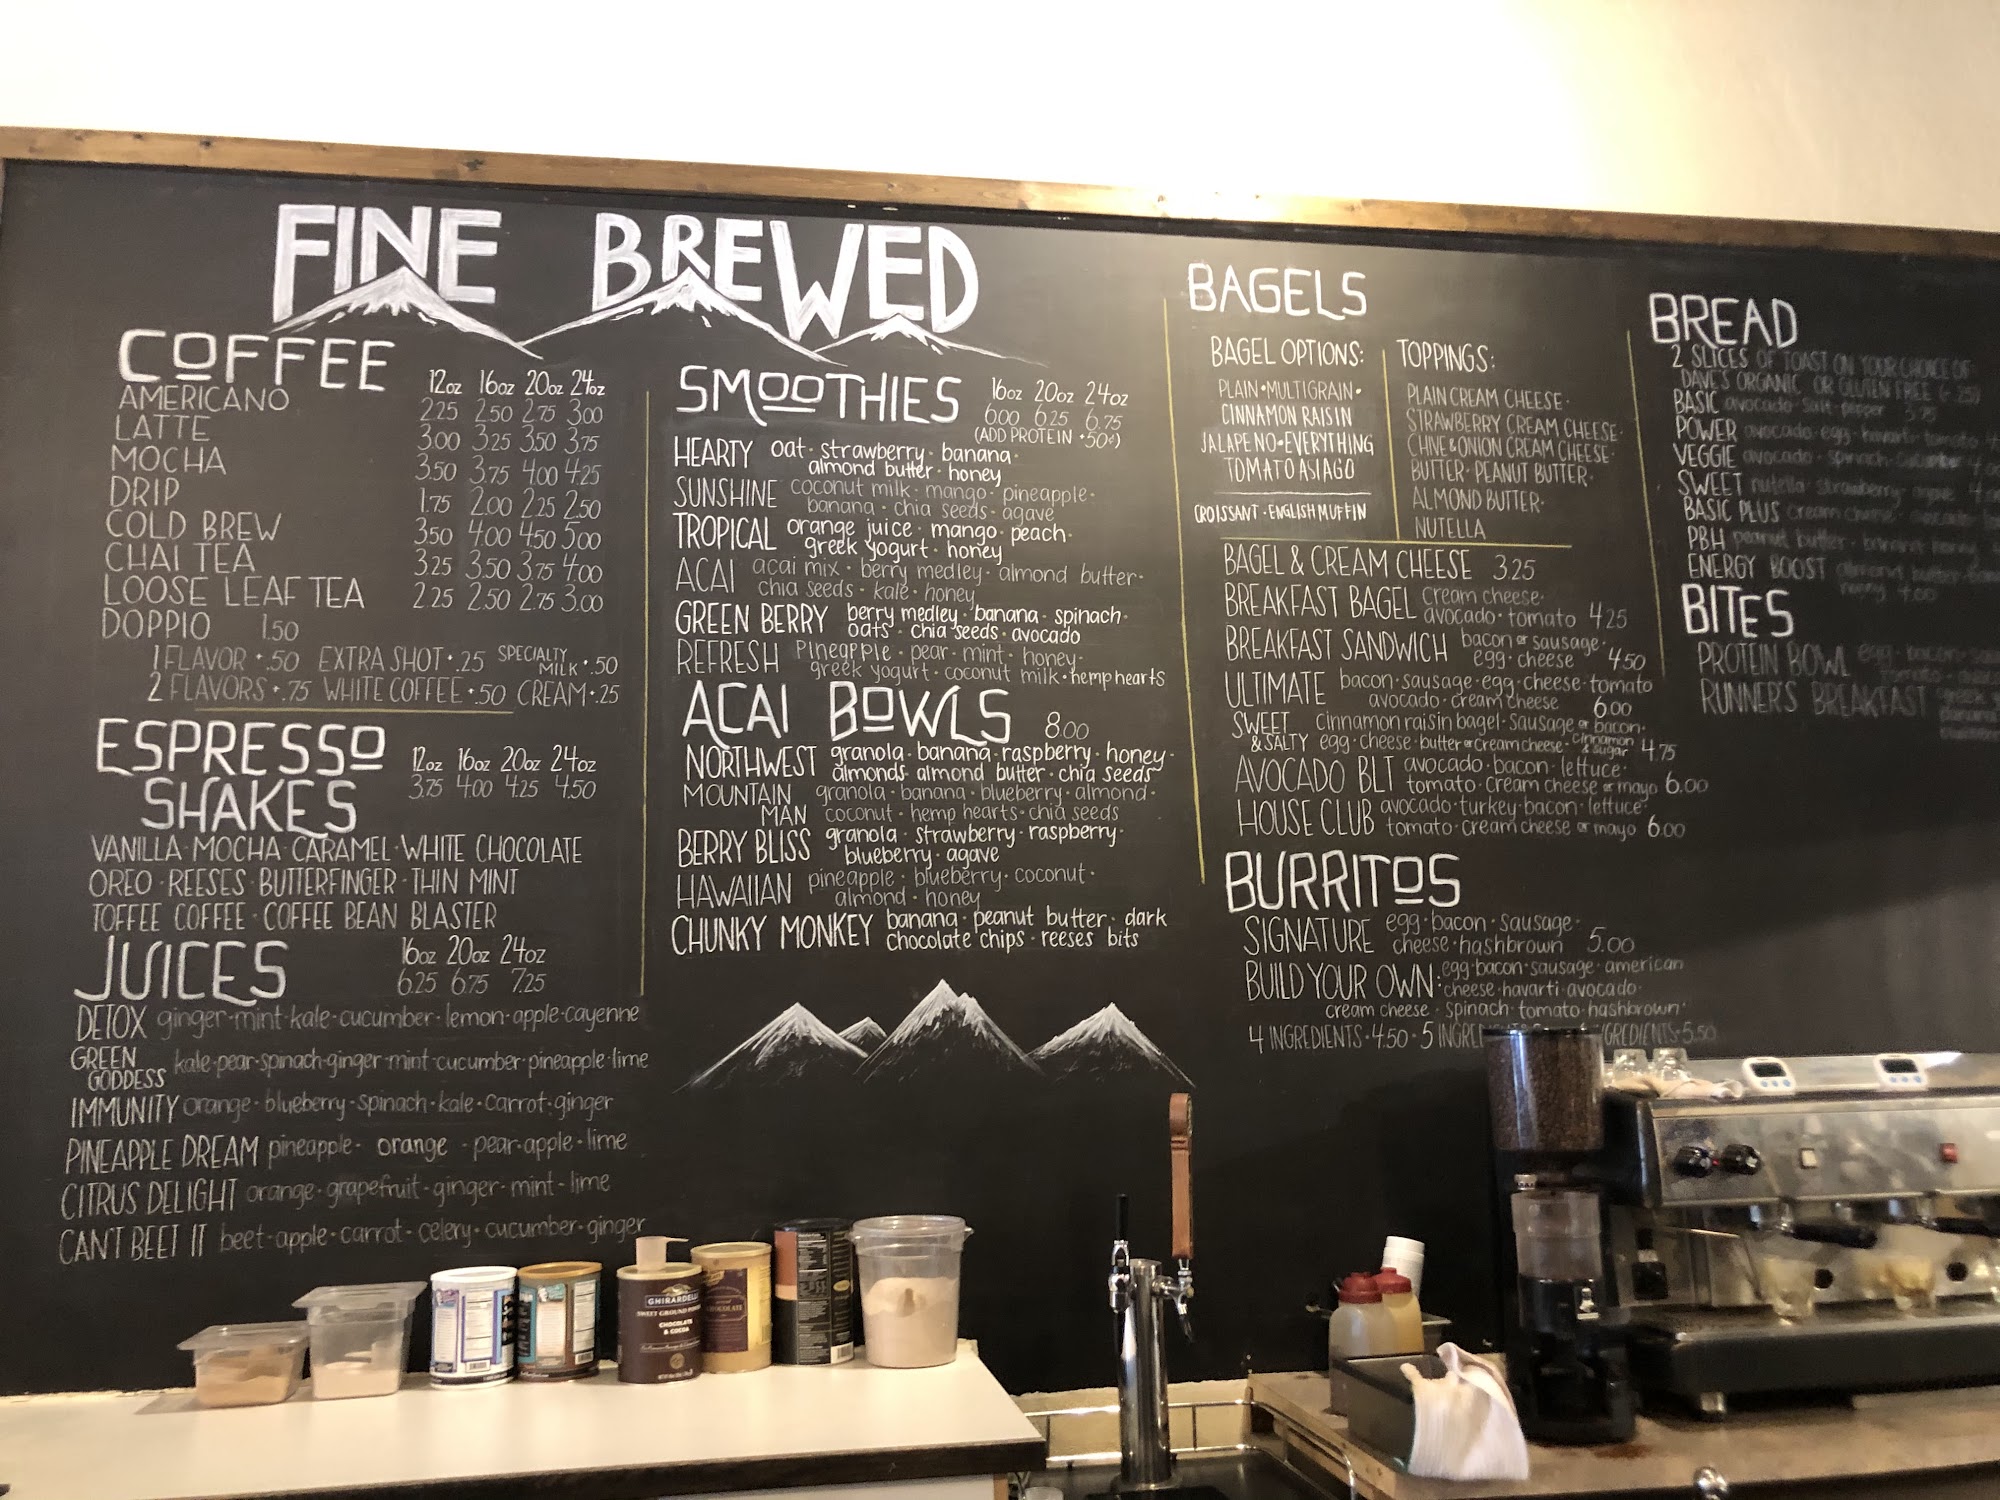 FINE BREWED
COFFEE 12oz 16oz 20oz 24oz
AMERICANO 2.25 2.50 2.75 3.00
LATTE 3.00 3.25 3.50 3.75
MOCHA 3.50 3.75 4.00 4.25
DRIP 1.75 2.00 2.25 2.50
COLD BREW 3.50 4.00 4.50 5.00
CHAI TEA 3.25 3.50 3.75 4.00
LOOSE LEAF TEA 2.25 2.50 2.75 3.00
DOPPIO 1.50
1 FLAVOR • .50 EXTRA SHOT • .25 SPECIALTY MILK • .50
2 FLAVORS • .75 WHITE COFFEE • .50 CREAM • .25
ESPRESSO
SHAKES
12oz 16oz 20oz 24oz
3.75 4.00 4.25 4.50
VANILLA · MOCHA · CARAMEL · WHITE CHOCOLATE
OREO · REESES · BUTTERFINGER · THIN MINT
TOFFEE COFFEE · COFFEE BEAN BLASTER
JUICES 16oz 20oz 24oz
6.25 6.75 7.25
DETOX ginger · mint · kale · cucumber · lemon · apple · cayenne
GREEN GODDESS kale · pear · spinach · ginger · mint · cucumber · pineapple · lime
IMMUNITY orange · blueberry · spinach · kale · carrot · ginger
PINEAPPLE DREAM pineapple · orange · pear · apple · lime
CITRUS DELIGHT orange · grapefruit · ginger · mint · lime
CAN'T BEET IT beet · apple · carrot · celery · cucumber · ginger
SMOOTHIES 16oz 20oz 24oz
6.00 6.25 6.75
(ADD PROTEIN • 50¢)
HEARTY oat · strawberry · banana ·
almond butter · honey
SUNSHINE coconut milk · mango · pineapple ·
banana · chia seeds · agave
TROPICAL orange juice · mango · peach ·
greek yogurt · honey
ACAI acai mix · berry medley · almond butter ·
chia seeds · kale · honey
GREEN BERRY berry medley · banana · spinach ·
oats · chia seeds · avocado
REFRESH Pineapple · pear · mint · honey ·
greek yogurt · coconut milk · hemp hearts
ACAI BOWLS 8.00
NORTHWEST granola · banana · raspberry · honey ·
almonds almond butter · chia seeds
MOUNTAIN MAN granola · banana · blueberry · almond ·
coconut · hemp hearts · chia seeds
BERRY BLISS granola · strawberry · raspberry ·
blueberry · agave
HAWAIIAN pineapple · blueberry · coconut ·
almond · honey
CHUNKY MONKEY banana · peanut butter · dark
chocolate chips · reeses bits
BAGELS
BAGEL OPTIONS:
PLAIN • MULTIGRAIN •
CINNAMON RAISIN
JALAPENO • EVERYTHING
TOMATO ASIAGO
CROISSANT · ENGLISH MUFFIN
TOPPINGS:
PLAIN CREAM CHEESE ·
STRAWBERRY CREAM CHEESE ·
CHIVE & ONION CREAM CHEESE ·
BUTTER · PEANUT BUTTER ·
ALMOND BUTTER ·
NUTELLA
BAGEL & CREAM CHEESE 3.25
BREAKFAST BAGEL cream cheese ·
avocado · tomato 4.25
BREAKFAST SANDWICH bacon or sausage ·
egg · cheese 4.50
ULTIMATE bacon · sausage · egg · cheese · tomato
avocado · cream cheese 6.00
SWEET & SALTY cinnamon raisin bagel · sausage or bacon ·
egg · cheese · butter or cream cheese · cinnamon & sugar 4.75
AVOCADO BLT avocado · bacon · lettuce ·
tomato · cream cheese or mayo 6.00
HOUSE CLUB avocado · turkey · bacon · lettuce ·
tomato · cream cheese or mayo 6.00
BURRITOS
SIGNATURE egg · bacon · sausage ·
cheese · hashbrown 5.00
BUILD YOUR OWN: egg · bacon · sausage · american
cheese · havarti · avocado ·
cream cheese · spinach · tomato · hashbrown ·
4 INGREDIENTS • 4.50 • 5 INGRE GREDIENTS • 5.50
BREAD
2 SLICES OF TOAST ON YOUR CHOICE OF
DAVE'S ORGANIC OR GLUTEN FREE
BASIC avocado · salt · pepper 3.75
POWER avocado · egg · havarti · tomato
VEGGIE avocado · spinach · cucumber
SWEET nutella · strawberry · agave
BASIC PLUS cream cheese · avocado
PBH peanut butter · banana · honey
ENERGY BOOST almond butter
honey 4.00
BITES
PROTEIN BOWL egg · bacon
tomato
RUNNER'S BREAKFAST greek
banana
GHIRARDELLI
SWEET GROUND
CHOCOLATE
& COCOA
CHOCOLATE